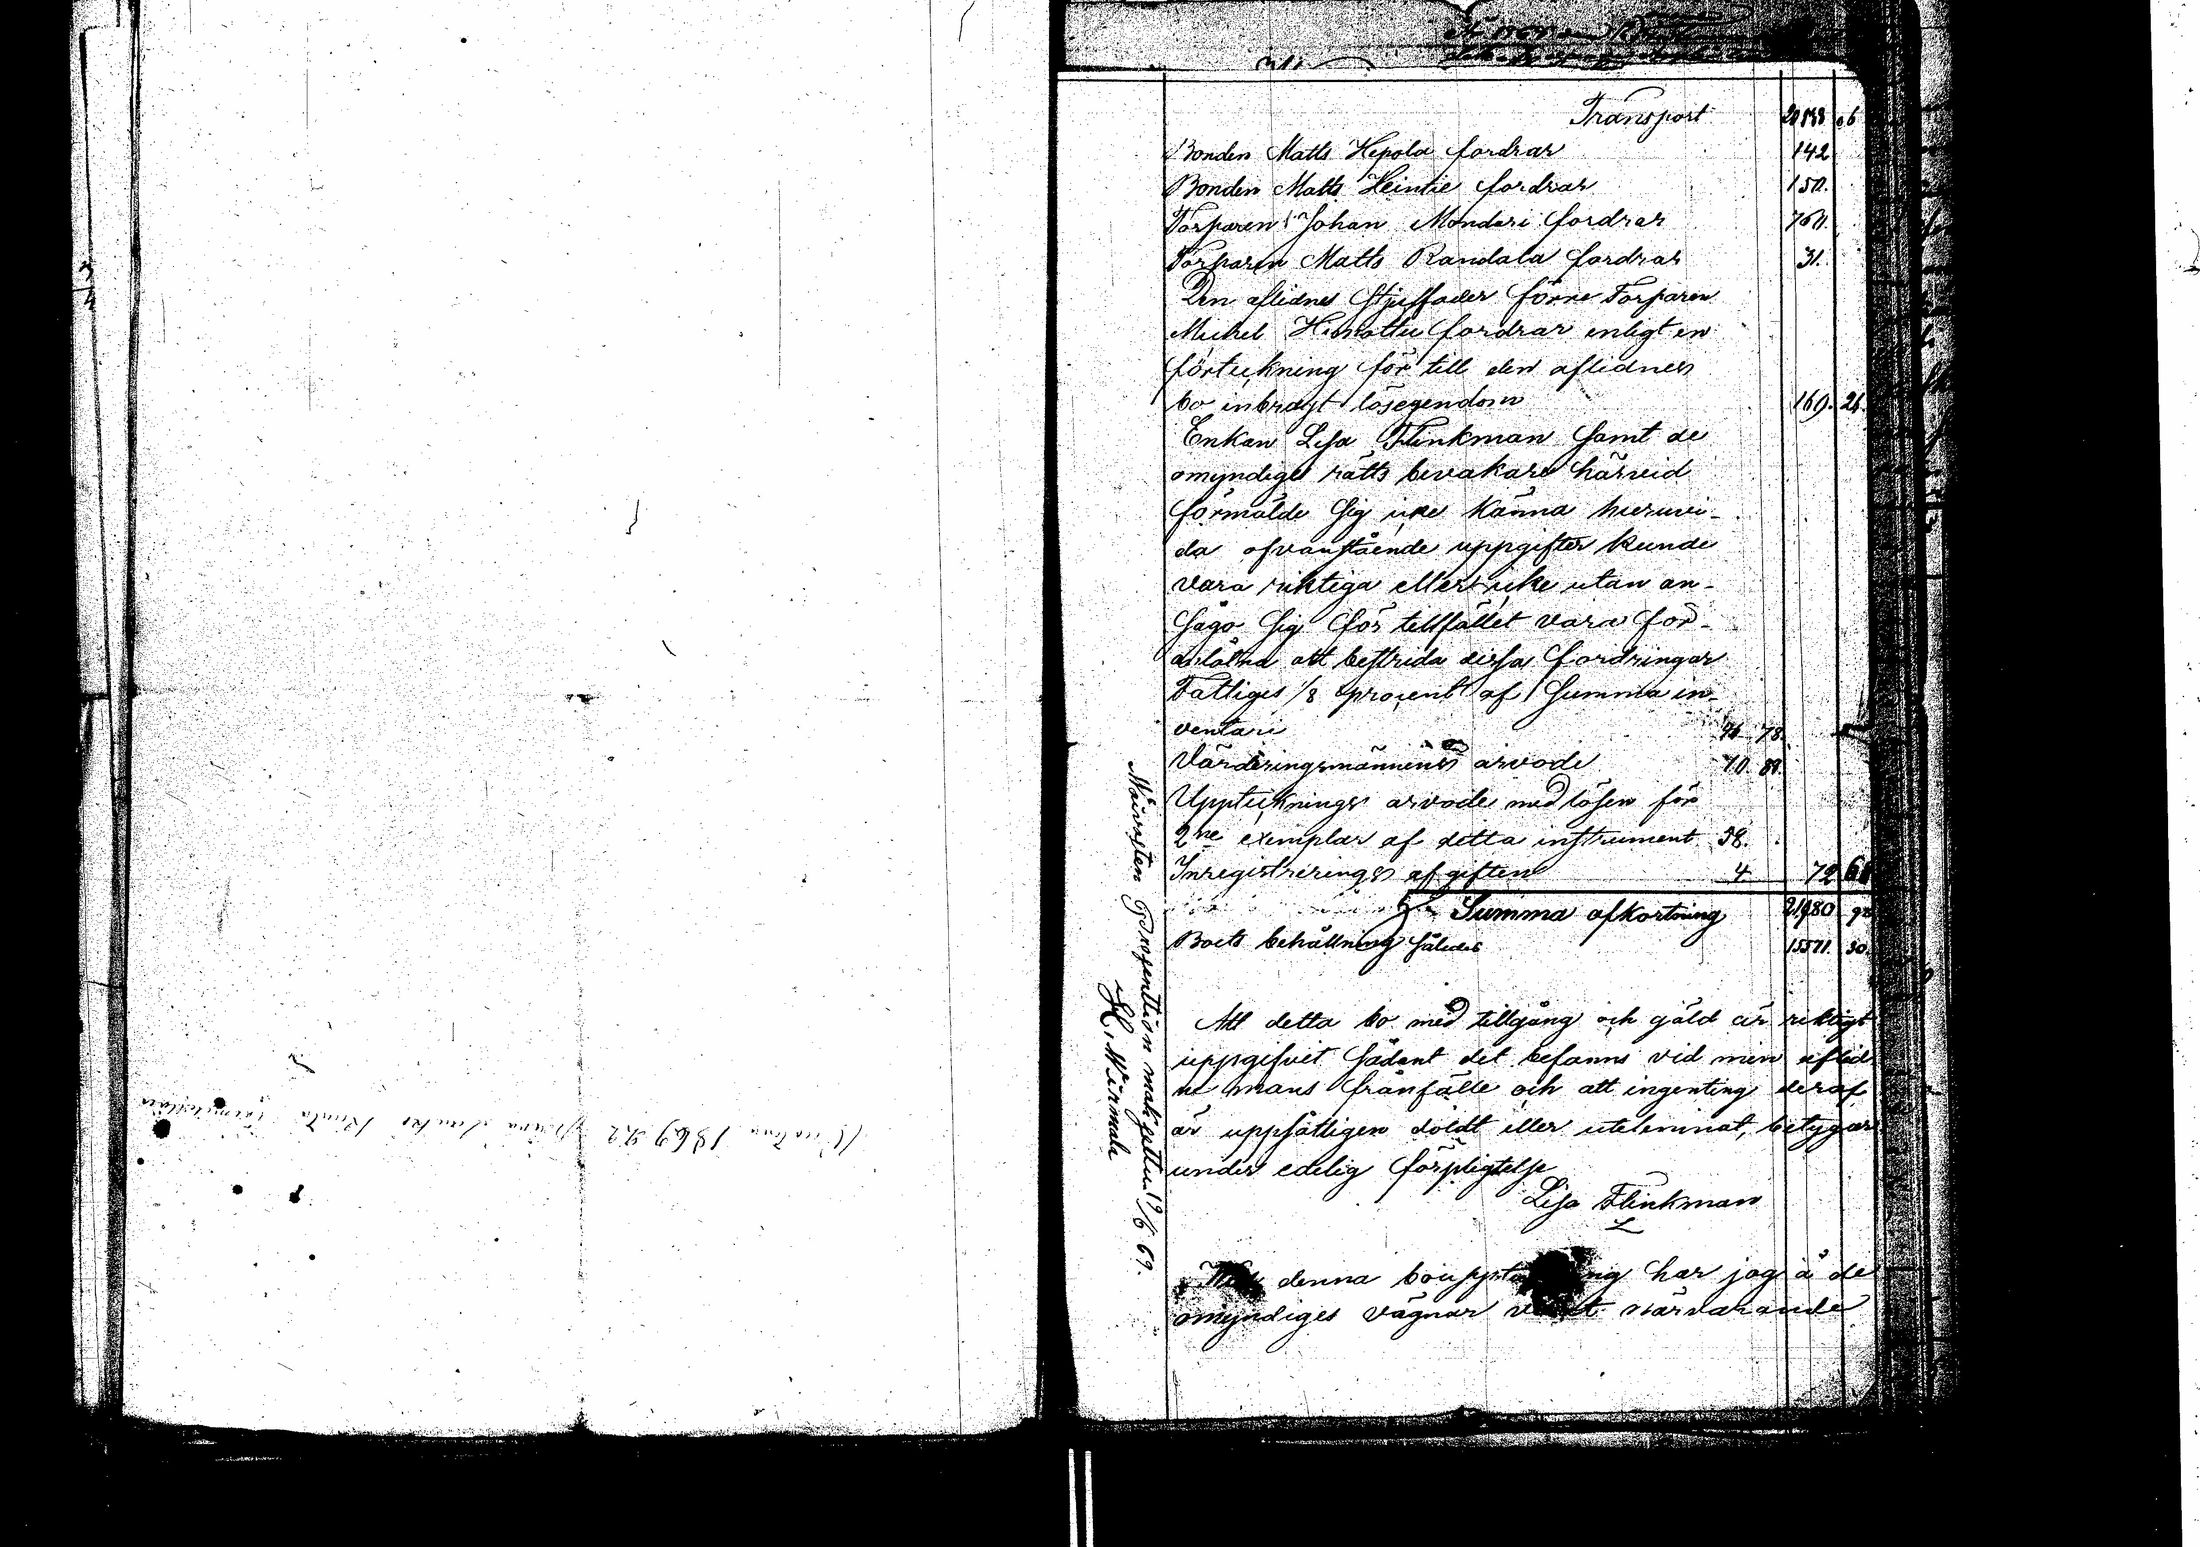 Transport 06
Bonden Matts Hepola fordrar 142
Bonden Matts Heintie fordrar 150.
Torparen Johan Mondari fordrar 760.
Torparen Matts Randala fordrar 31.
Den aflidnes styffader förre Torparen
Mickel fordrar enligt en
förteckning för till den aflidnes
bo inbragt lösegendom 169. 26.
Enkan Lisa Flinkman samt de
omyndiges rätts bevakare härvid
förmälde sig icke känna huruvi-
da ofvanstående uppgifter kunde
vara riktiga eller icke utan an-
sågo sig för tillfället vara för-
att bestrida dessa fordringar
Fattiges 1/8 procent af Summa in-
ventari 78.
Värderingsmännens arvode
Uppteknings arvode med lösen för
2ne exemplar af detta instrument 38.
Inregistrerings afgiften 4 72
Summa afkortning 21980
Boets behållning således 15571. 30.
Att detta bo med tillgång och gäld är riktigt
uppgifvit sådant det befanns vid min aflid
ne mans frånfälle och att ingenting deraf
är uppsåtligen doldt eller utelemnat, betygar
under edelig förpligtelse
Lisa Flinkman
denna har jag å de
omyndiges vägnar varit närvarande
69.
1869